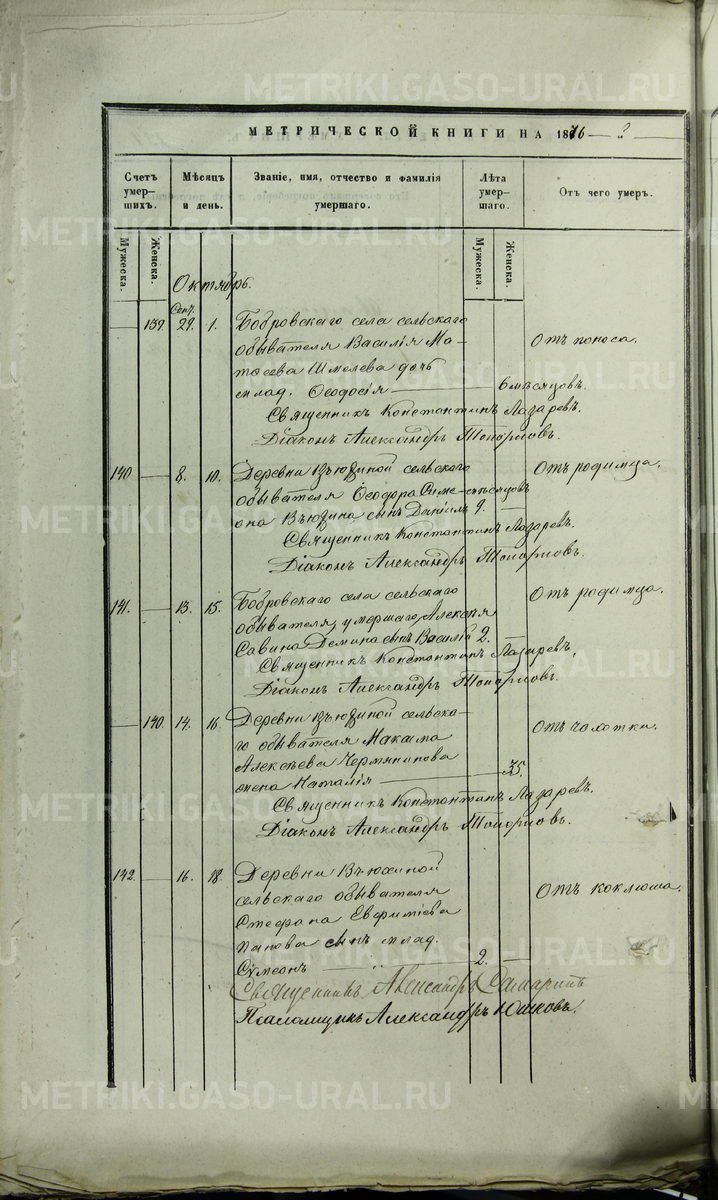 МЕТРИЧЕСКОЙ КНИГИ НА 1876
Счетъ умер-шихъ. Мѣсяцъ и день. Званіе, имя, отчество и фамилія умершаго. Лѣта умер-шаго. Отъ чего умеръ.
Мужеска. Женска. Мужеска. Женска.
Октябрь.
Сент.
139. 29. 1. Бобровскаго села сельскаго
обывателя Василія Ма- Отъ поноса.
тѳеева Шмелева дочь
млад. Ѳеодосія 6 мѣсяцовъ.
Священникъ Константинъ Лазаревъ.
Діаконъ Александръ Топорковъ.
140 8. 10. Деревни Вьюхиной сельскаго Отъ родимца.
обывателя Ѳеодора Симе- мѣсяцовъ
она Вьюхина сынъ Даніилъ 9.
Священникъ Константинъ Лазаревъ.
Діаконъ Александръ Топорковъ.
141. 13. 15. Бобровскаго села сельскаго Отъ родимца.
обывателя, умершаго, Алексѣя
Савина Демина сынъ Василій 2.
Священникъ Константинъ Лазаревъ.
Діаконъ Александръ Топорковъ.
140. 14. 16. Деревни Вьюхиной сельска-
го обывателя Максима Отъ чахотки.
Алексѣева
жена Наталія 35.
Священникъ Константинъ Лазаревъ.
Діаконъ Александръ Топорковъ.
142. 16. 18. Деревни Вьюхиной
сельскаго обывателя Отъ коклюша.
Стефана Евфиміева
Панова сынъ млад.
Сѵмеонъ 2.
Священникъ Александръ
Псаломщикъ Александръ Юшковъ.
METRIKI.GASO-URAL.RU